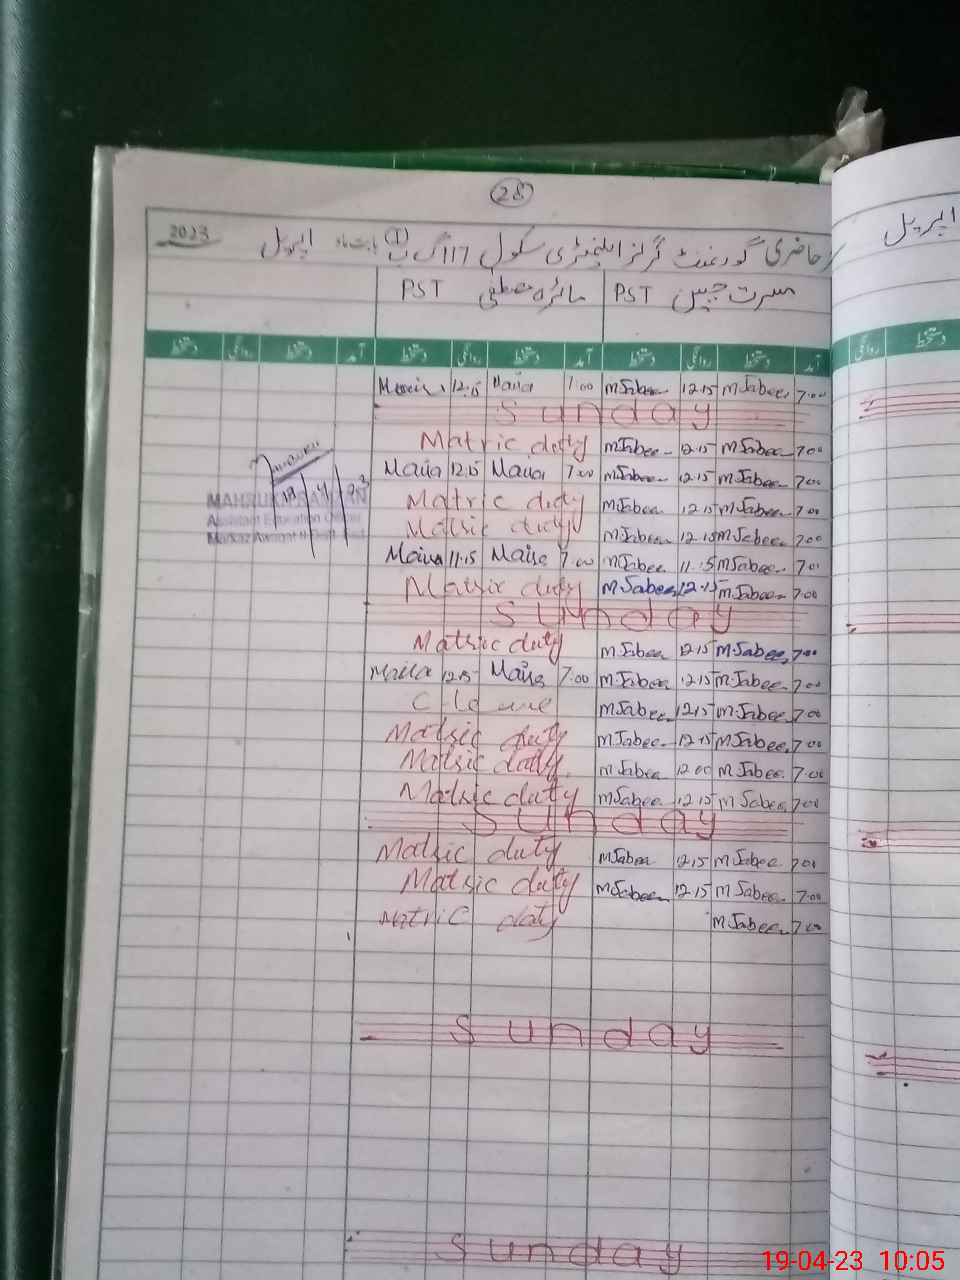 28
حاضری گورنمنٹ گرلز ایلیمنٹری سکول 117 گ ب (1) بابت ماہ اپریل 2023
اپریل
مسرت جبیں PST مائرہ مصطفی PST
آمد دستخط روانگی دستخط آمد دستخط روانگی دستخط آمد دستخط روانگی دستخط
دستخط روانگی
12.15 Maira 7.00 MJabee 12.15 MJabee 7.00
Sunday
Matric duty MJabee 12.15 MJabee 7.00
Maira 12.15 Maira 7.00 MJabee 12.15 MJabee 7.00
Matric duty MJabee 12.15 MJabee 7.00
Matric duty MJabee 12.15 MJabee 7.00
Maira 11.15 Maira 7.00 MJabee 11.15 MJabee 7.00
Matric duty MJabee 12.15 MJabee 7.00
Sunday
Matric duty MJabee 12.15 MJabee 7.00
Maira 12.15 Maira 7.00 MJabee 12.15 MJabee 7.00
MJabee 12.15 MJabee 7.00
Matric duty MJabee 12.15 MJabee 7.00
Matric duty MJabee 12.00 MJabee 7.00
Matric duty MJabee 12.15 MJabee 7.00
Sunday
Matric duty MJabee 12.15 MJabee 7.00
Matric duty MJabee 12.15 MJabee 7.00
Matric duty MJabee 7.00
Sunday
Sunday
Assistant Education Officer
19-04-23 10:05